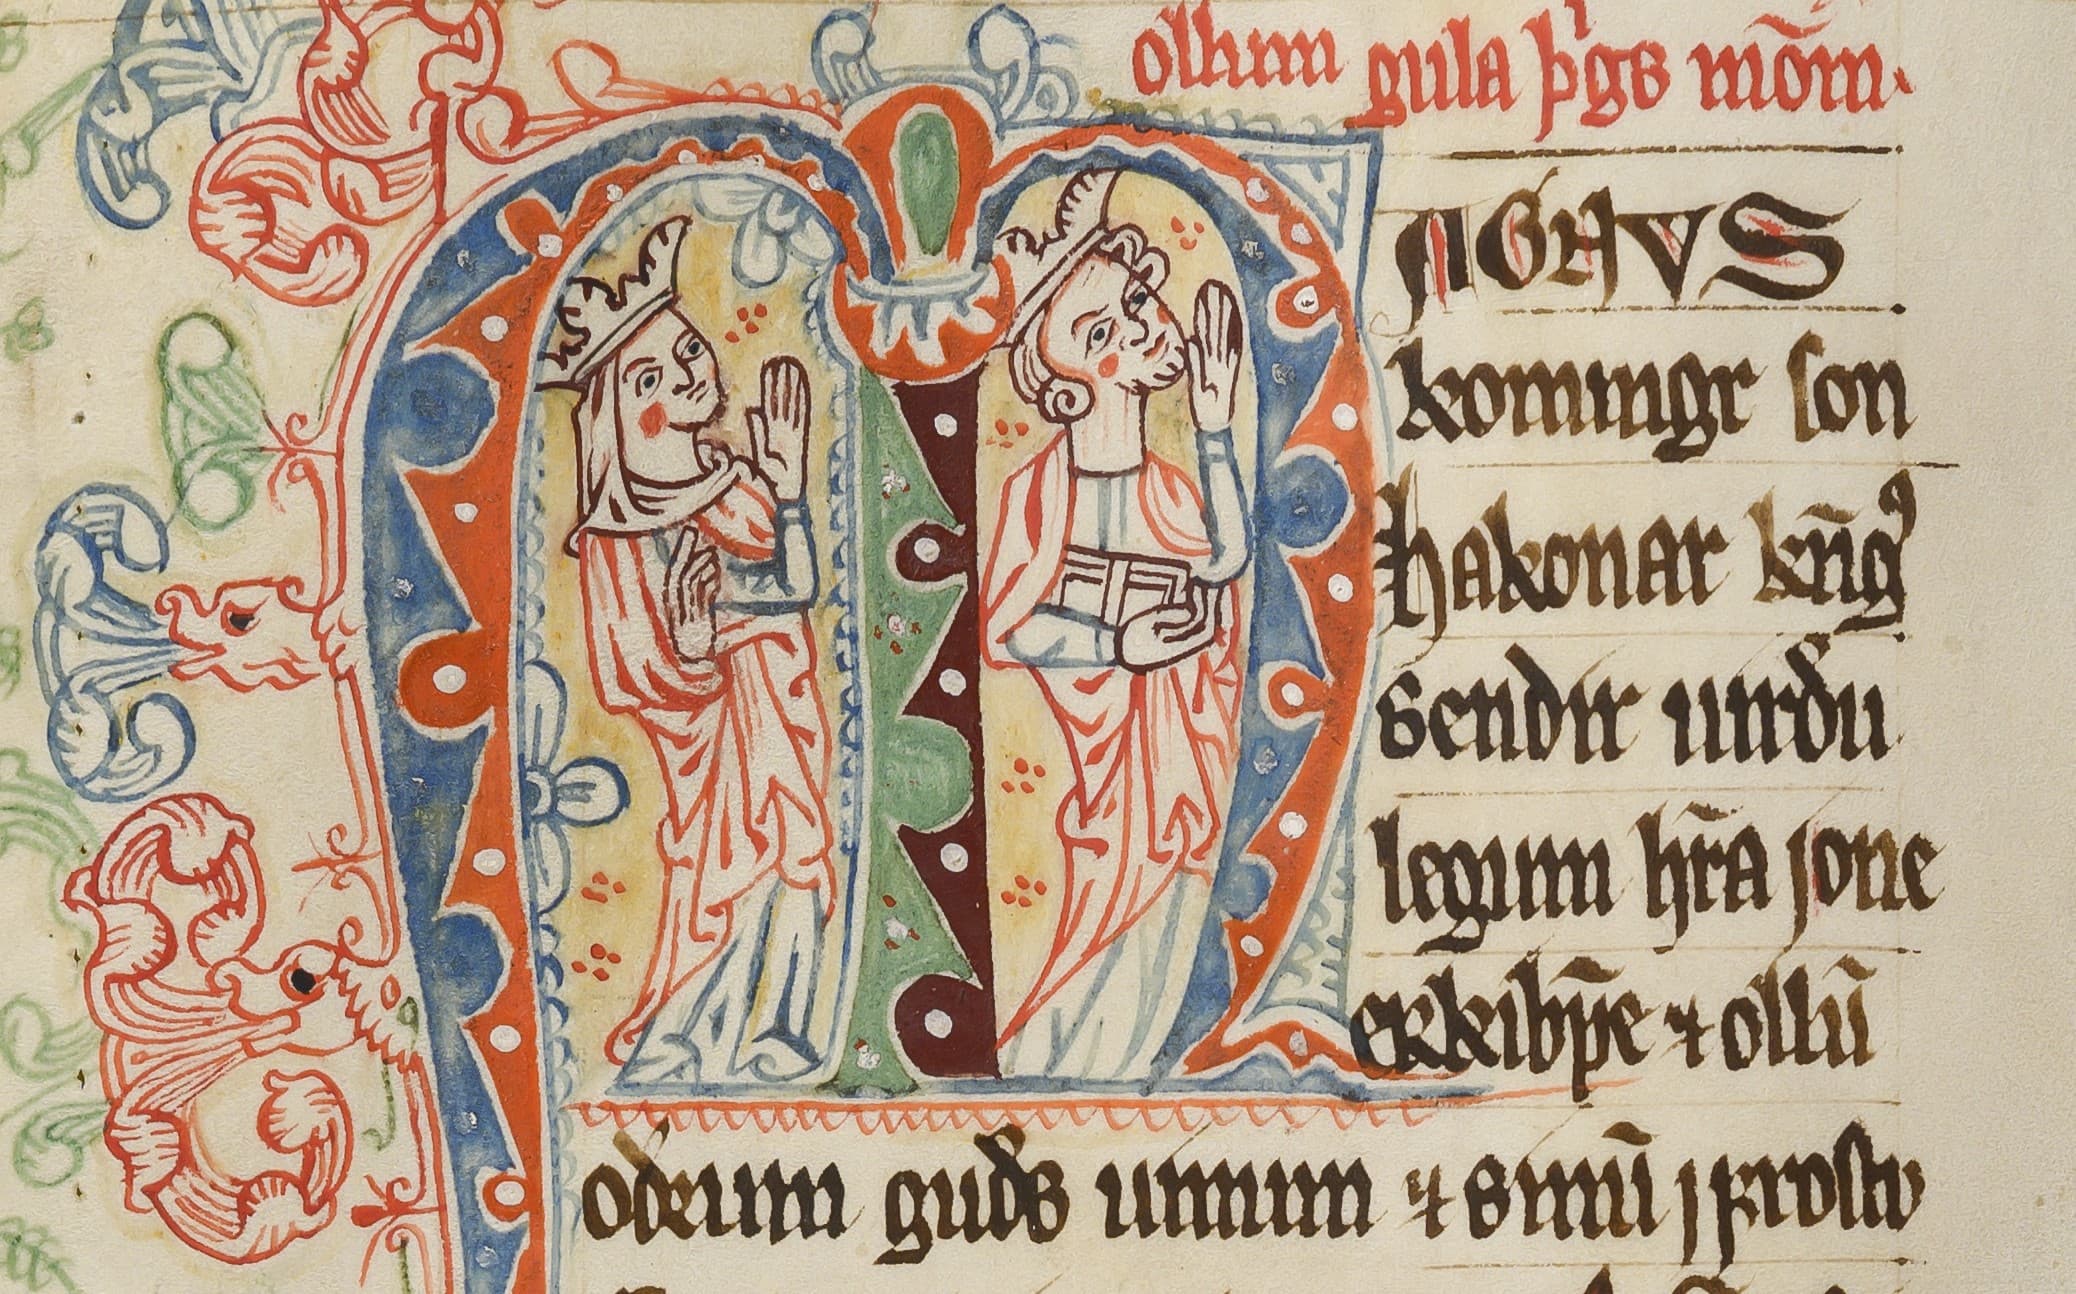 ollum gula þigs mōm.
MAGNVS
konungr son
hakonar kn̄gs
sendir uirdu
legum hr̄a jone
erkibp̄e ⁊ ollū
odrum guds uinum ⁊ sinū j frostu